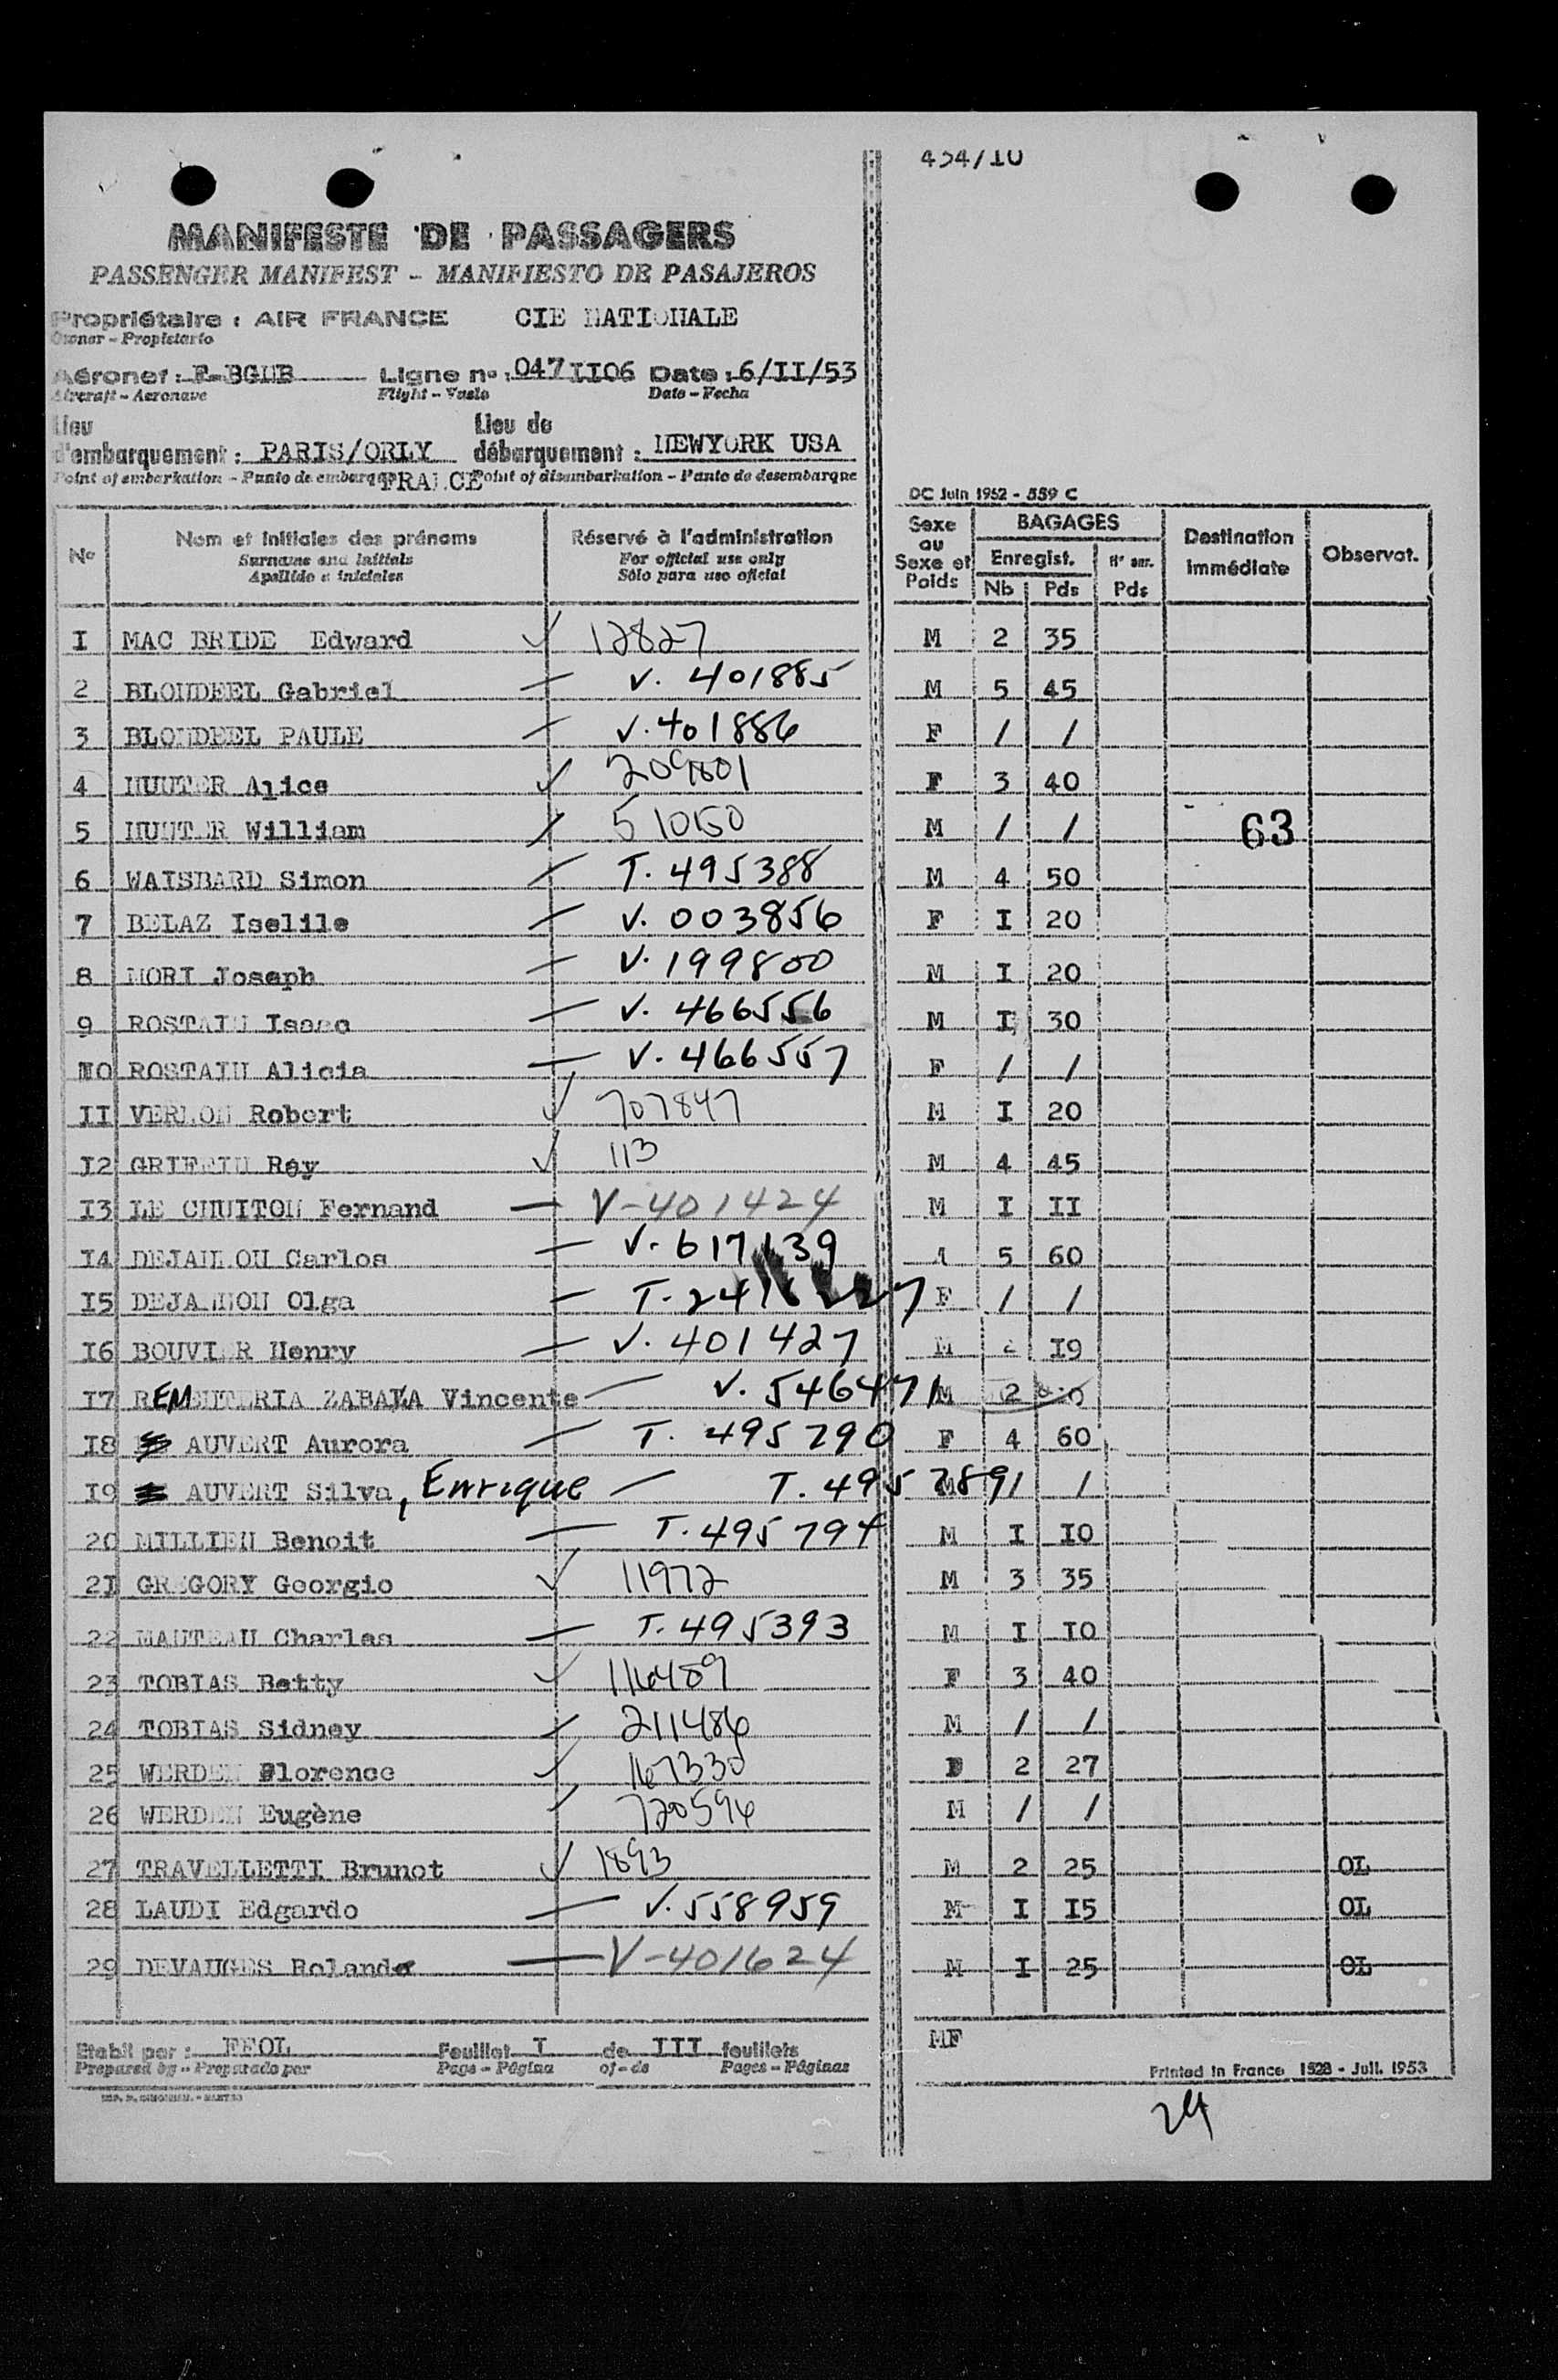 454/10
MANIFESTE DE PASSAGERS
PASSENGER MANIFEST - MANIFIESTO DE PASAJEROS
Propriétaire : AIR FRANCE CIE NATIONALE
Owner - Propietario
Aéronef : Ligne no : 047 II06 Date : 6/II/53
Aircraft - Aeronave Flight - Vuelo Date - Fecha
Lieu Lieu de
d'embarquement : PARIS/ORLY débarquement : NEWYORK USA
Point of embarkation - Punto de embarque FRANCE Point of disembarkation - Punto de desembarque
DC Juin 1952 - 559 C
No Nom et initiales des prénoms Réservé à l'administration Sexe ou Sexe et Poids BAGAGES Destination immédiate Observat.
Surname and initials For official use only Enregist. Nb Pds Pds
Apellido e iniciales Sólo para uso oficial
I MAC BRIDE Edward ✓ 12827 M 2 35
2 BLONDEEL Gabriel — V. 401885 M 5 45
3 BLONDEEL PAULE — V. 401886 F / /
4 HUNTER Alice ✓ 209801 F 3 40
5 HUNTER William / M / / 63
6 WAISBARD Simon — T. 495388 M 4 50
7 BELAZ Iselile — V. 003856 F I 20
8 MORI Joseph — V. 199800 M I 20
9 ROSTAIN Isaac — V. 466556 M I 30
IO ROSTAIN Alicia — V. 466557 F / /
II VERNON Robert ✓ 707847 M I 20
I2 GRIFFIN Ray ✓ 113 M 4 45
I3 LE CHUITON Fernand — V-401424 M I II
I4 DEJANNON Carlos — V. 617139 5 60
I5 DEJANNON Olga — F / /
I6 BOUVIER Henry — V. 401427 M I9
I7 REMENTERIA ZABALA Vincente — V. 546471 M 2
I8 AUVERT Aurora — T. 495790 F 4 60
I9 AUVERT Silva, Enrique — T. 495789 M / /
20 MILLIEN Benoit — T. 495794 M I IO
2I GREGORY Georgio ✓ 11972 M 3 35
22 MAUTEAU Charles — T. 495393 M I IO
23 TOBIAS Betty ✓ 116489 F 3 40
24 TOBIAS Sidney ✓ 211486 M / /
25 WERDEN Florence ✓ 167330 F 2 27
26 WERDEN Eugène / 720596 M / /
27 TRAVELLETTI Brunot ✓ 1893 M 2 25 OL
28 LAUDI Edgardo — V. 558959 M I I5 OL
29 DEVAUGES Rolande — V-401624 M I 25 OL
Etabli par : FEOL Feuillet I de III feuillets MF
Prepared by - Preparado por Page - Página of - de Pages - Páginas
Printed in France 1528 - Juil. 1953
24